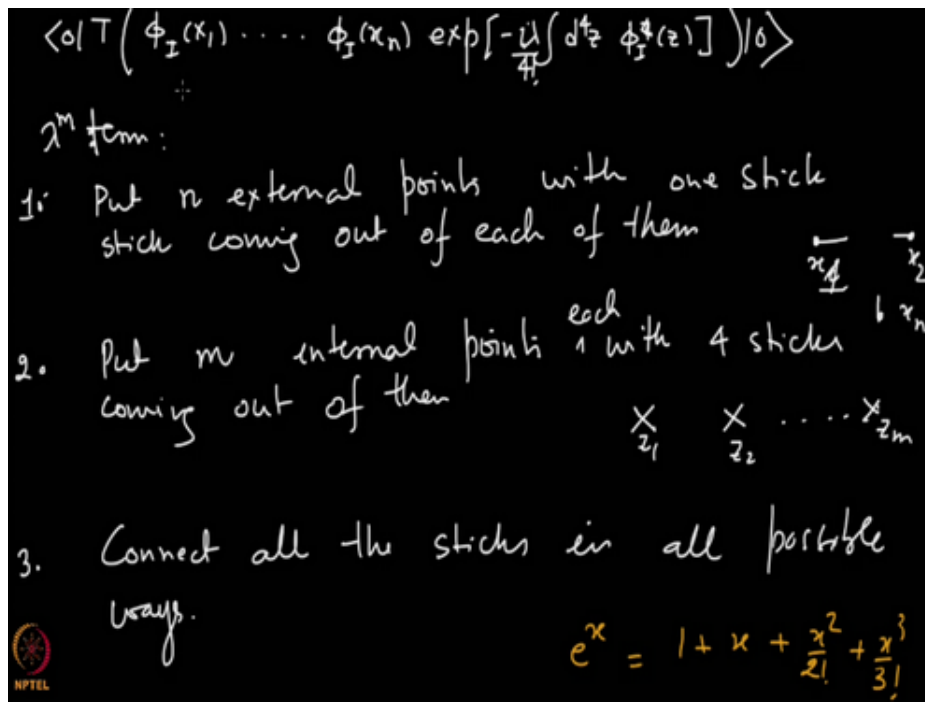 <0|T(ϕ_I(x_1) .... ϕ_I(x_n) exp[-iλ/4! ∫d^4z ϕ_I^4(z)])|0>
λ^m term:
1. Put n external points with one stick
stick coming out of each of them
x_1 x_2
x_n
each
2. Put m internal points ^ with 4 sticks
coming out of them
z_1 z_2 .... z_m
3. Connect all the sticks in all possible
ways.
e^x = 1 + x + x^2/2! + x^3/3!
NPTEL